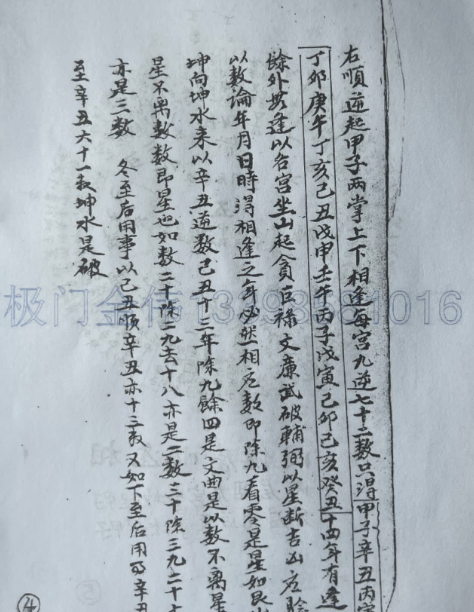 右順逆起甲子兩掌上下相逢每宮九逆七十二数只得甲子辛丑丙
丁卯庚午丁亥己丑戊申壬午丙子戊寅己卯己亥癸丑十四年有逢
餘外無逢以各宮坐山起貪巨祿文廉武破輔弼以星断吉凶应
以数論年月日時得相逢之年必然一相应数即除九看零是星如艮
坤向坤水来以辛丑逆数己丑十三年除九餘四是文曲是以数不离星
星不离数数即星也如数二十除二九去十八亦是二数三十除三九二十
亦是三数 冬至后用事以己丑順辛丑亦十三数又如下至后用的辛丑
至辛丑六十一数坤水是破
极门金 1016
④